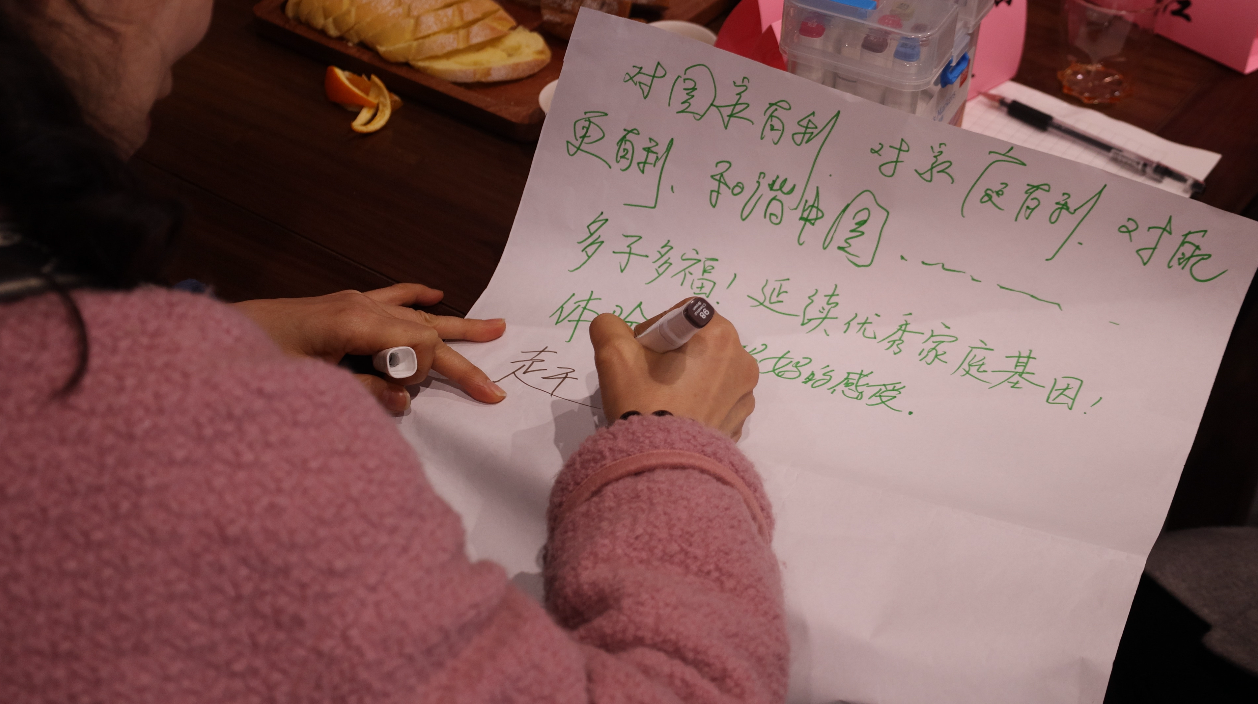 对国家有利. 对家庭有利. 对配
更有利、和谐中国......
多子多福！延续优秀家庭基因！
体验 好的感受.
走